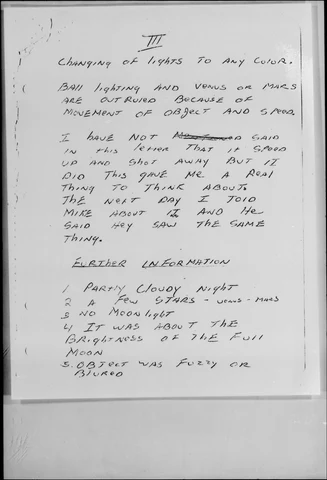 III
CHANGING OF LIGHTS TO ANY COLOR.
BALL LIGHTING AND VENUS OR MARS
ARE OUTRULED BECAUSE OF
MOVEMENT OF OBJECT AND SPEED.
I HAVE NOT SAID
IN THIS LETTER THAT IT SPEED
UP AND SHOT AWAY BUT IT
DID THIS GAVE ME A REAL
THING TO THINK ABOUT.
THE NEXT DAY I TOLD
MIKE ABOUT IT AND HE
SAID HEY SAW THE SAME
THING.
FURTHER INFORMATION
1 PARTLY CLOUDY NIGHT
2 A FEW STARS - VENUS - MARS
3 NO MOONLIGHT
4 IT WAS ABOUT THE
BRIGHTNESS OF THE FULL
MOON
5. OBJECT WAS FUZZY OR
BLURED